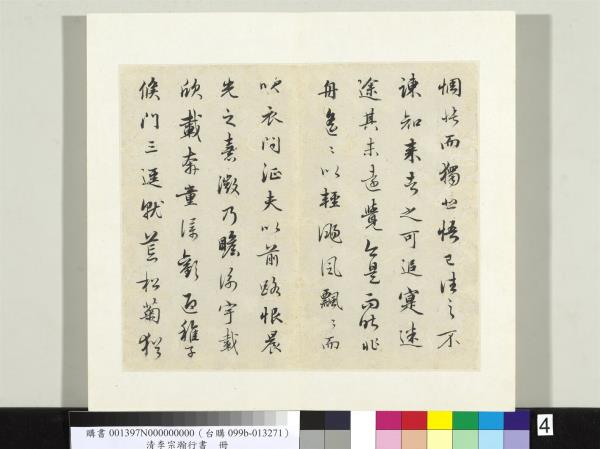 惆悵而獨悲悟已往之不
諫知来者之可追寔迷
途其未遠覺今是而昨非
舟遙〻以輕颺風飄〻而
吹衣問征夫以前路恨晨
光之熹微乃瞻衡宇載
欣載奔童僕歡迎稚子
候門三逕就荒松菊猶
購書 001397N000000000（台購 099b-013271）
清李宗瀚行書 冊
4